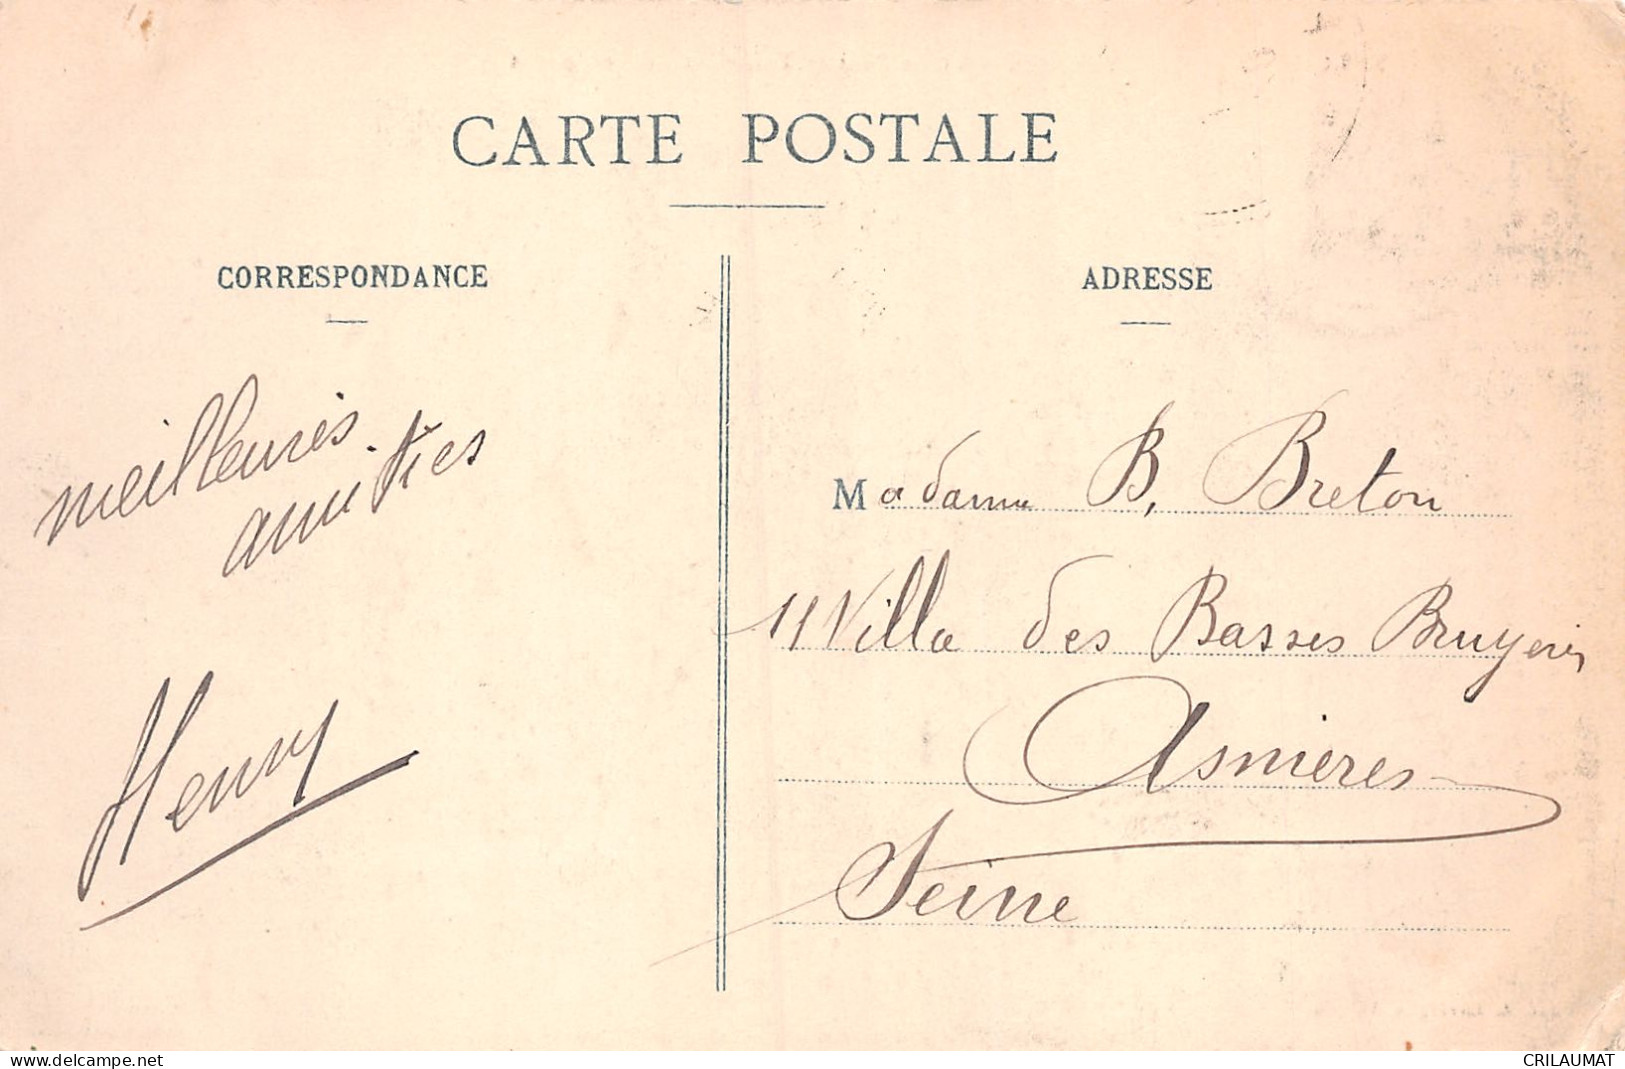 CARTE POSTALE
CORRESPONDANCE
ADRESSE
meilleures
amitiés
Henry
Madame B. Breton
11 Villa des Basses Bruyeres
Asnieres
Seine
www.delcampe.net
CRILAUMAT